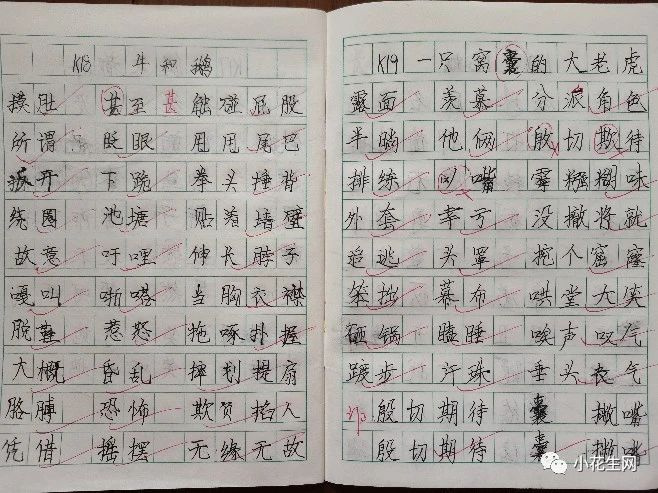 K18 牛和鹅
摸肚 甚至 甚 触碰 屁股
所谓 眨眼 甩甩 尾巴
掀开 下跪 拳头 捶背
绕圈 池塘 贴着 墙壁
故意 吁哩 伸长 脖子
嘎叫 嘶嗒 当胸 衣襟
脱鞋 惹怒 拖 啄 扑 握
大概 昏乱 摔到 提扇
胳膊 恐怖 欺负 掐人
凭借 摇摆 无缘无故
K19 一只窝囊的大老虎
露面 羡慕 分派 角色
半晌 他俩 殷切 期待
排练 叫嘴 豁 糨糊 味
外套 幸亏 没撤 将就
追逃 头罩 挖个 窟窿
笨拙 幕布 哄堂大笑
砸锅 瞌睡 唉声叹气
踱步 汗珠 垂头丧气
殷切期待 囊 撇嘴
殷切期待 囊 撇
小花生网